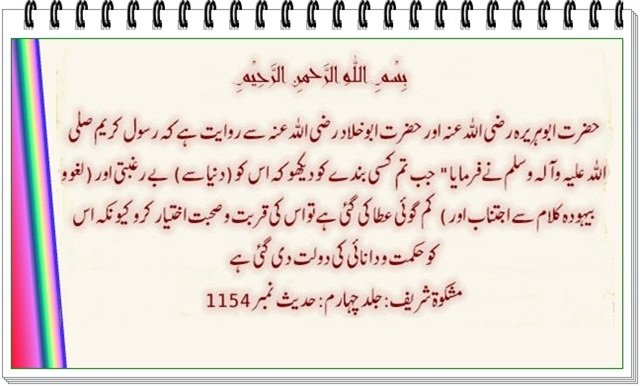 بِسْمِ اللّٰهِ الرَّحْمٰنِ الرَّحِيْمِ
حضرت ابوہریرہ رضی اللہ عنہ اور حضرت ابوخلاد رضی اللہ عنہ سے روایت ہے کہ رسول کریم صلی
اللہ علیہ و آلہ وسلم نے فرمایا " جب تم کسی بندے کو دیکھو کہ اس کو (دنیا سے) بے رغبتی اور (لغو و
بیہودہ کلام سے اجتناب اور ) کم گوئی عطا کی گئی ہے تو اس کی قربت و صحبت اختیار کرو کیونکہ اس
کو حکمت و دانائی کی دولت دی گئی ہے
مشکوٰۃ شریف: جلد چہارم: حدیث نمبر 1154